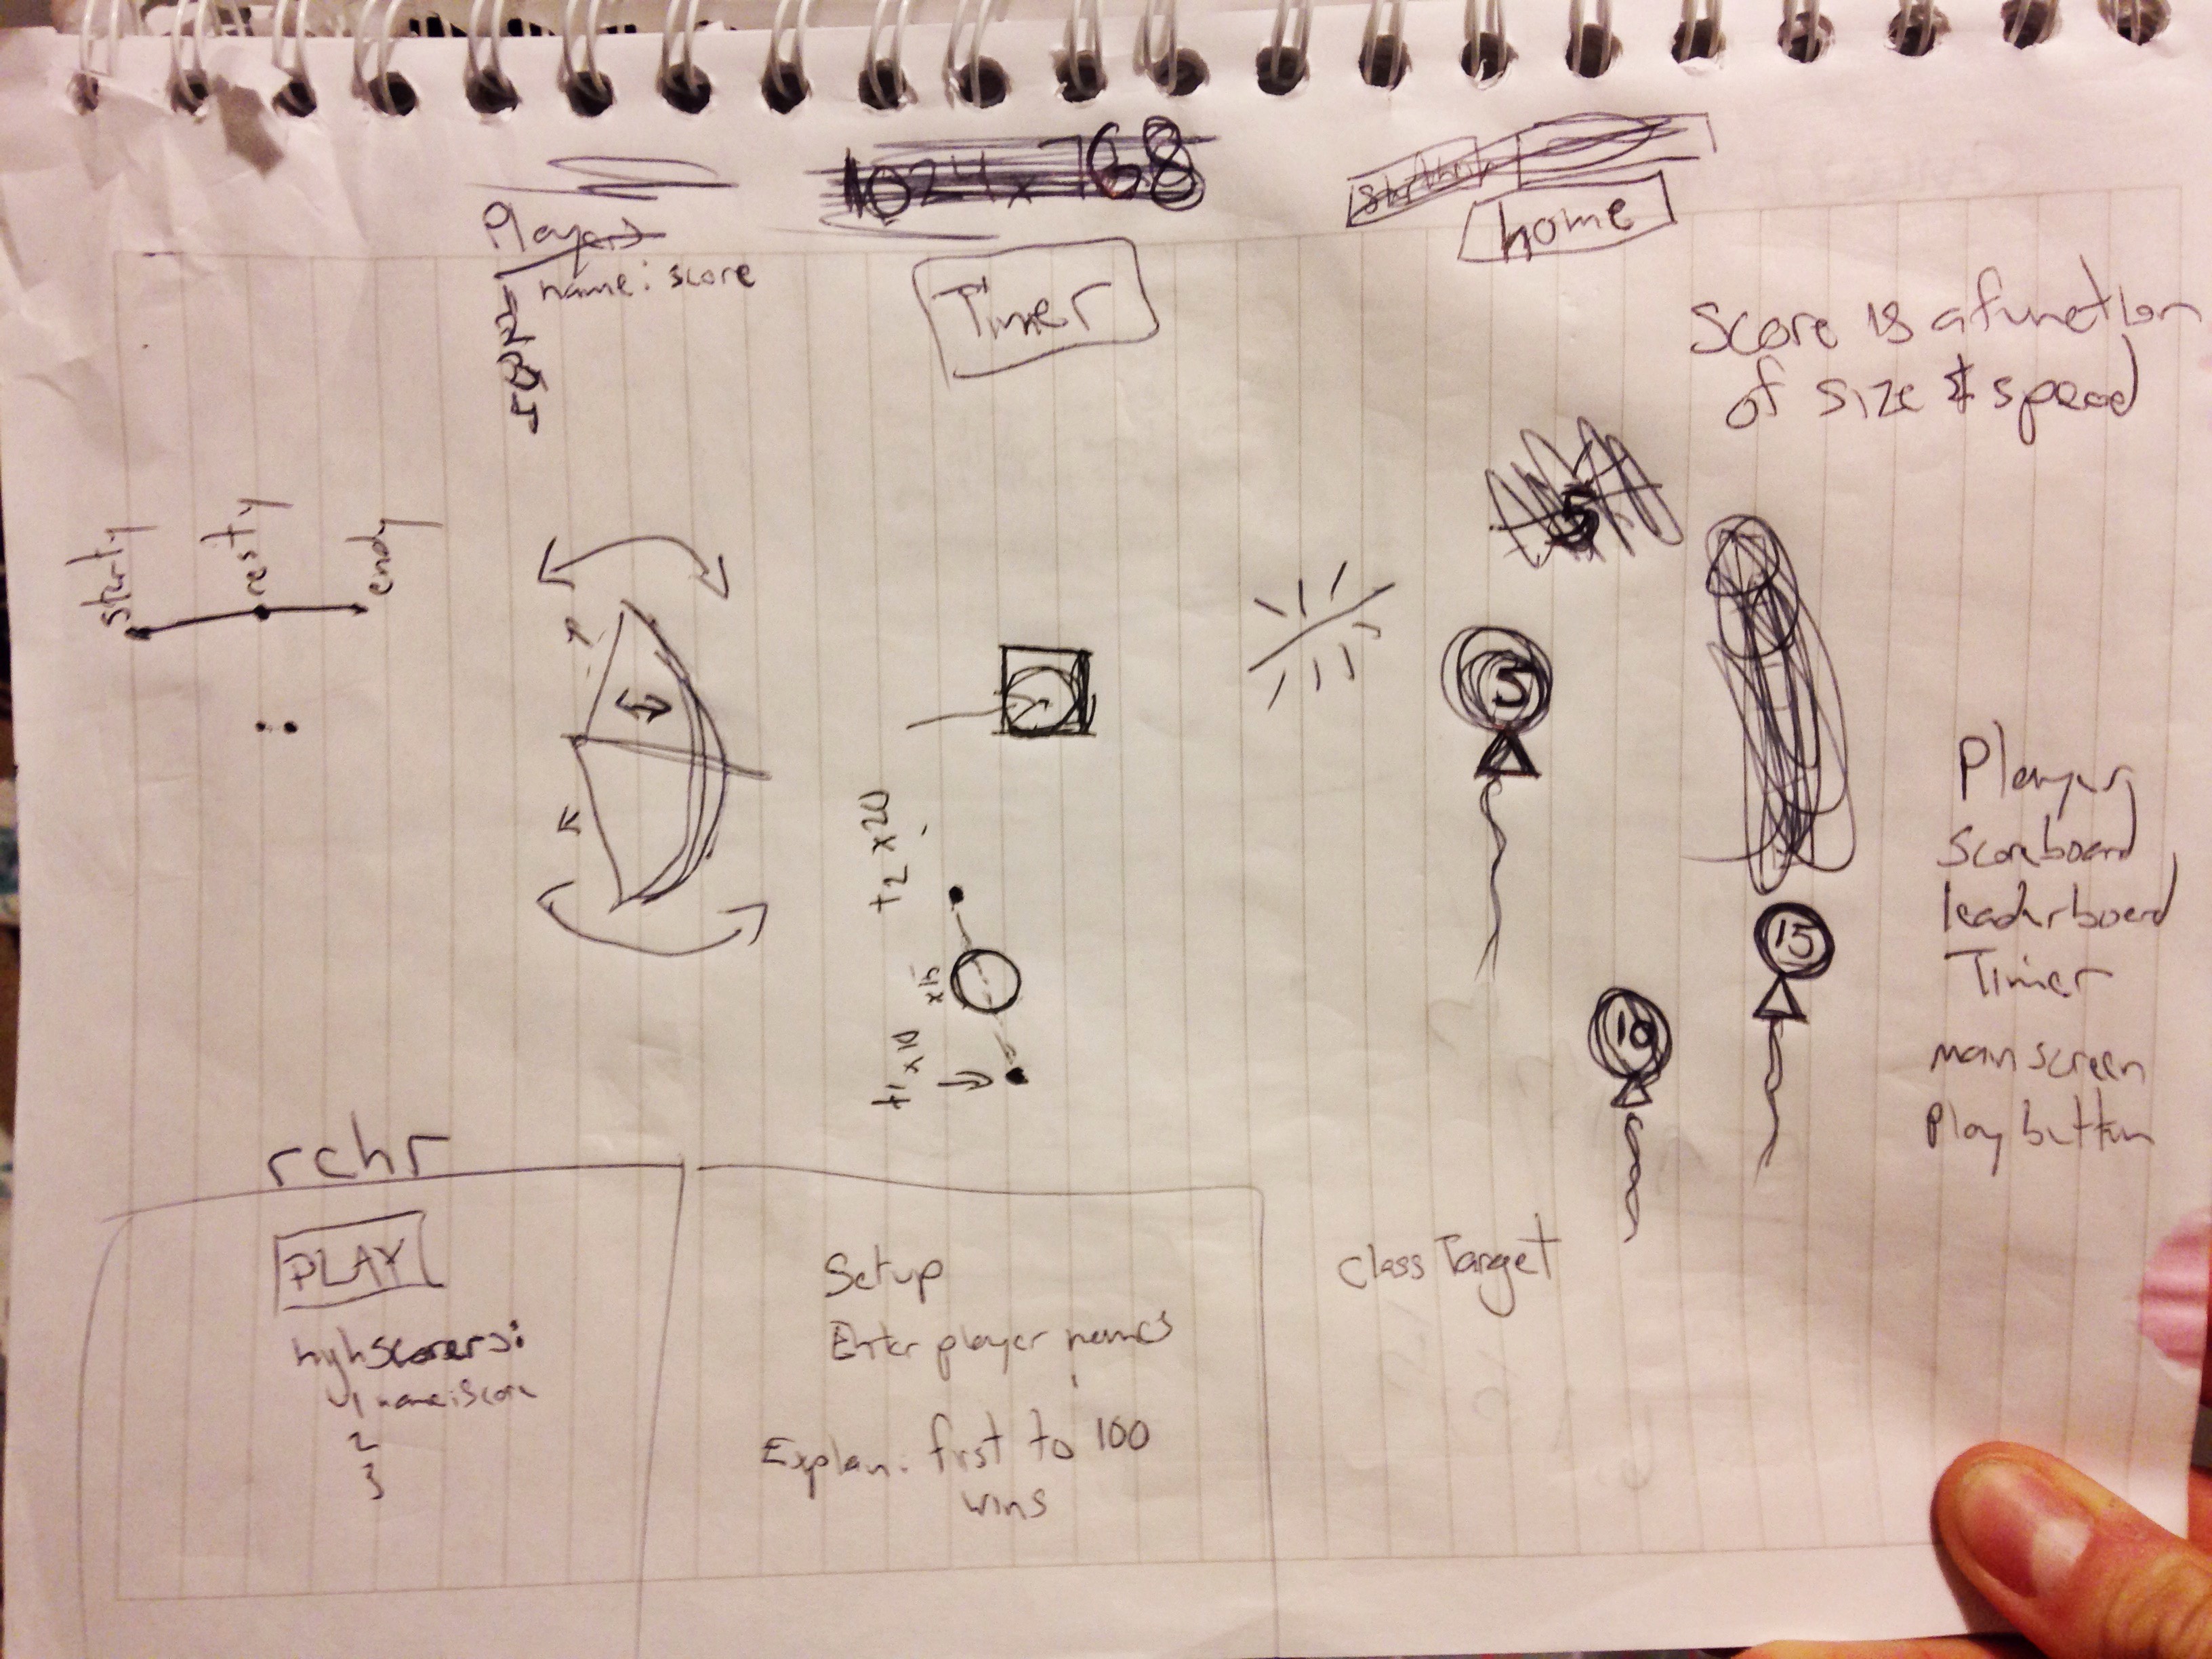 1024 x 768
home
Players
name: score
Timer
Score is a function
of size & speed
starty
resty
endy
5
5
t2 x20
x15
t1 x10
15
10
Players
Scoreboard
leaderboard
Timer
main screen
Play button
rchr
PLAY
high scorers:
1 name: Score
2
3
Setup
Enter player names
Explan: first to 100
wins
class Target